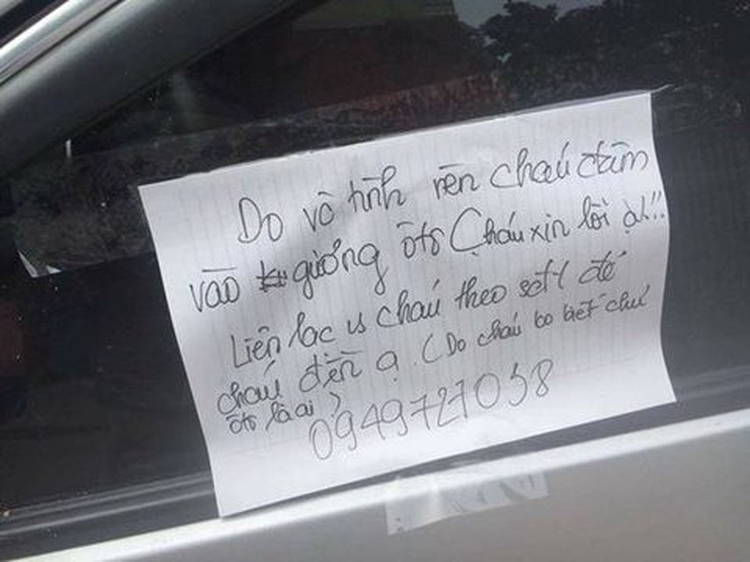 Do vô tình nên cháu đâm
vào gương ôtô (cháu xin lỗi ạ!!
Liên lạc vs cháu theo sđt để
cháu đền ạ. (Do cháu ko biết chủ
ôtô là ai)
0949727058